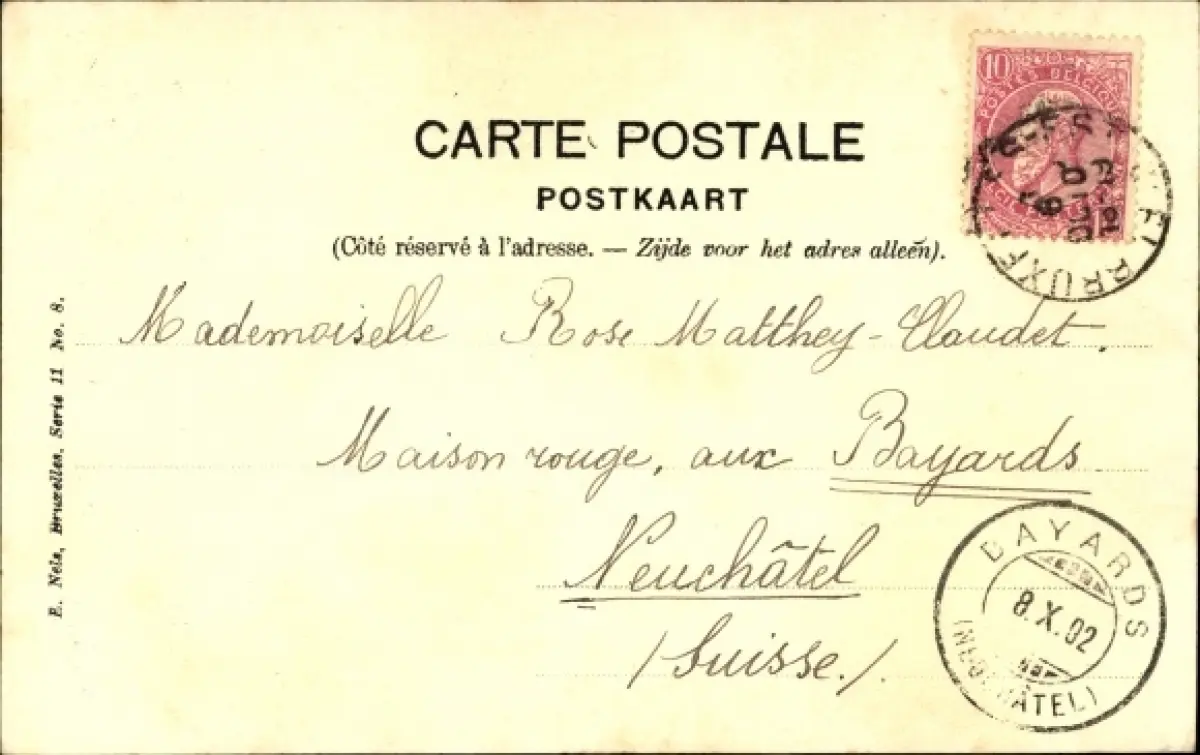 10
POSTES BELGIQUE
CARTE POSTALE
POSTKAART
(Côté réservé à l'adresse. — Zijde voor het adres alleen).
Mademoiselle Rose Matthey-Claudet.
Maison rouge, aux Bayards
Neuchâtel
/Suisse./
BAYARDS
8.X.02
(NEUCHÂTEL)
E. Nels, Bruxelles, Serie 11 No. 8.